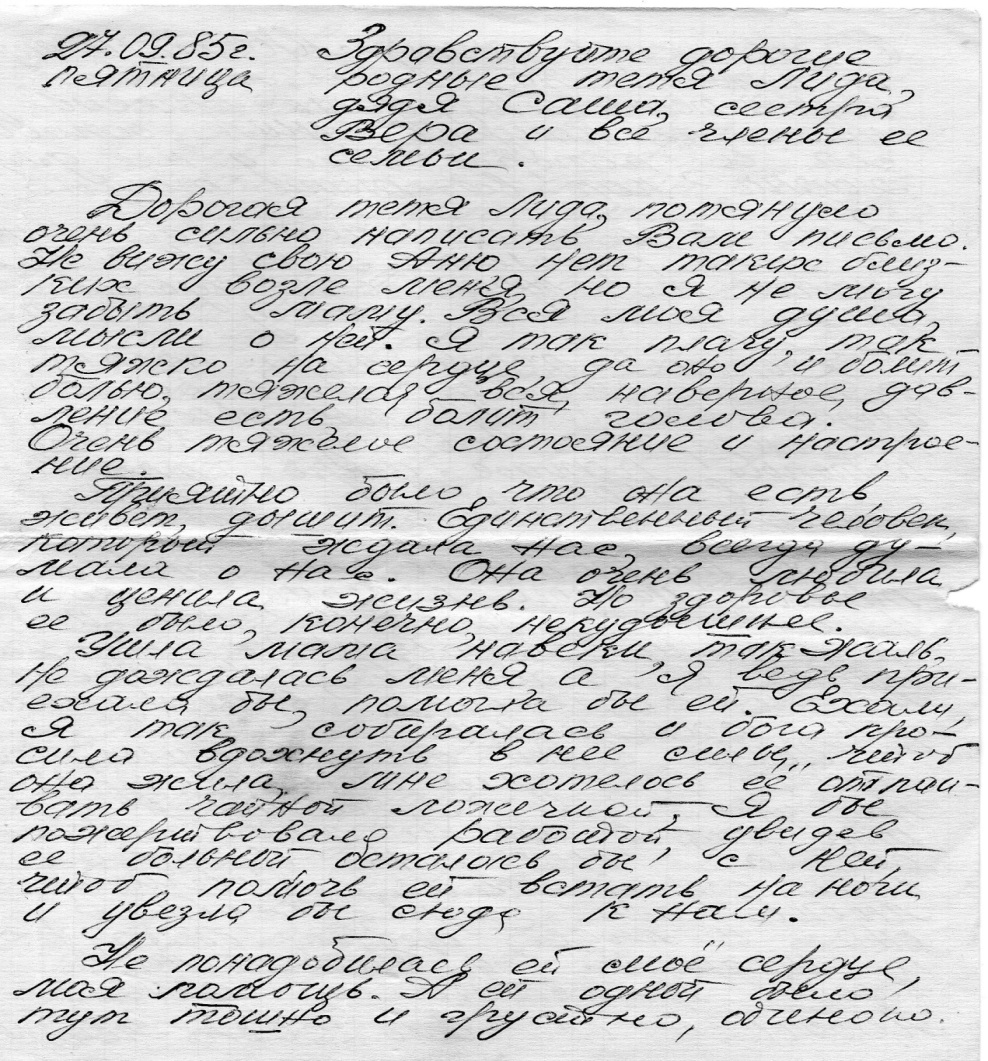 27.09.85г.
пятница
Здравствуйте дорогие
родные тетя Лида,
дядя Саша, сестра
Вера и все члены ее
семьи.
Дорогая тетя Лида, потянуло
очень сильно написать Вам письмо.
Не вижу свою Аню нет таких близ-
ких возле меня, но я не могу
забыть маму. Вся моя душа,
мысли о ней. Я так плачу, так
тяжко на сердце, да оно и болит
болью, тяжелая вся, наверное, дав-
ление есть, болит голова.
Очень тяжелое состояние и настрое-
ние.
Приятно было, что она есть
живет, дышит. Единственный человек,
который ждала нас, всегда ду-
мала о нас. Она очень любила
и ценила жизнь. Но здоровье
ее было, конечно, некудышнее.
Ушла мама навеки, так жаль,
не дождалась меня а я ведь при-
ехала бы, помогла бы ей. Ехали,
я так собиралась и бога про-
сила вдохнуть в нее силы, чтоб
она жила, мне хотелось её отпаи-
вать чайной ложечкой. Я бы
пожертвовала работой, увидев
ее больной осталась бы с ней,
чтоб помочь ей встать на ноги
и увезла бы сюда к нам.
Не понадобилась ей моё сердце,
моя помощь. А ей одной было
тут тошно и грустно, одиноко.